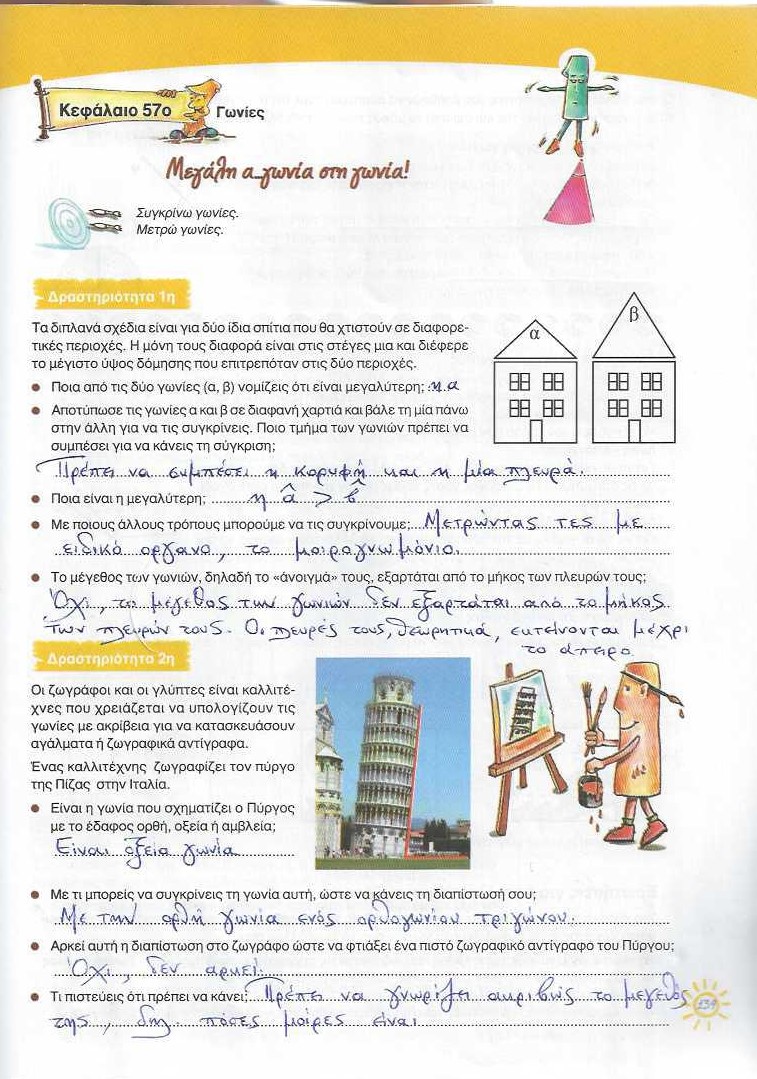 Κεφάλαιο 57ο
Γωνίες
Μεγάλη α..γωνία στη γωνία!
Συγκρίνω γωνίες.
Μετρώ γωνίες.
Δραστηριότητα 1η
Τα διπλανά σχέδια είναι για δύο ίδια σπίτια που θα χτιστούν σε διαφορε-
τικές περιοχές. Η μόνη τους διαφορά είναι στις στέγες μια και διέφερε
το μέγιστο ύψος δόμησης που επιτρεπόταν στις δύο περιοχές.
α
β
• Ποια από τις δύο γωνίες (α, β) νομίζεις ότι είναι μεγαλύτερη; η α
• Αποτύπωσε τις γωνίες α και β σε διαφανή χαρτιά και βάλε τη μία πάνω
στην άλλη για να τις συγκρίνεις. Ποιο τμήμα των γωνιών πρέπει να
συμπέσει για να κάνεις τη σύγκριση;
Πρέπει να συμπέσει η κορυφή και η μία πλευρά.
• Ποια είναι η μεγαλύτερη; η α̂ > β̂
• Με ποιους άλλους τρόπους μπορούμε να τις συγκρίνουμε; Μετρώντας τες με
ειδικό όργανο, το μοιρογνωμόνιο.
• Το μέγεθος των γωνιών, δηλαδή το «άνοιγμά» τους, εξαρτάται από το μήκος των πλευρών τους;
Όχι, το μέγεθος των γωνιών δεν εξαρτάται από το μήκος
των πλευρών τους. Οι πλευρές τους, θεωρητικά, εκτείνονται μέχρι
το άπειρο.
Δραστηριότητα 2η
Οι ζωγράφοι και οι γλύπτες είναι καλλιτέ-
χνες που χρειάζεται να υπολογίζουν τις
γωνίες με ακρίβεια για να κατασκευάσουν
αγάλματα ή ζωγραφικά αντίγραφα.
Ένας καλλιτέχνης ζωγραφίζει τον πύργο
της Πίζας στην Ιταλία.
• Είναι η γωνία που σχηματίζει ο Πύργος
με το έδαφος ορθή, οξεία ή αμβλεία;
Είναι οξεία γωνία
• Με τι μπορείς να συγκρίνεις τη γωνία αυτή, ώστε να κάνεις τη διαπίστωσή σου;
Με την ορθή γωνία ενός ορθογωνίου τριγώνου.
• Αρκεί αυτή η διαπίστωση στο ζωγράφο ώστε να φτιάξει ένα πιστό ζωγραφικό αντίγραφο του Πύργου;
Όχι, δεν αρκεί.
• Τι πιστεύεις ότι πρέπει να κάνει; Πρέπει να γνωρίζει ακριβώς το μέγεθός
της, δηλ. πόσες μοίρες είναι